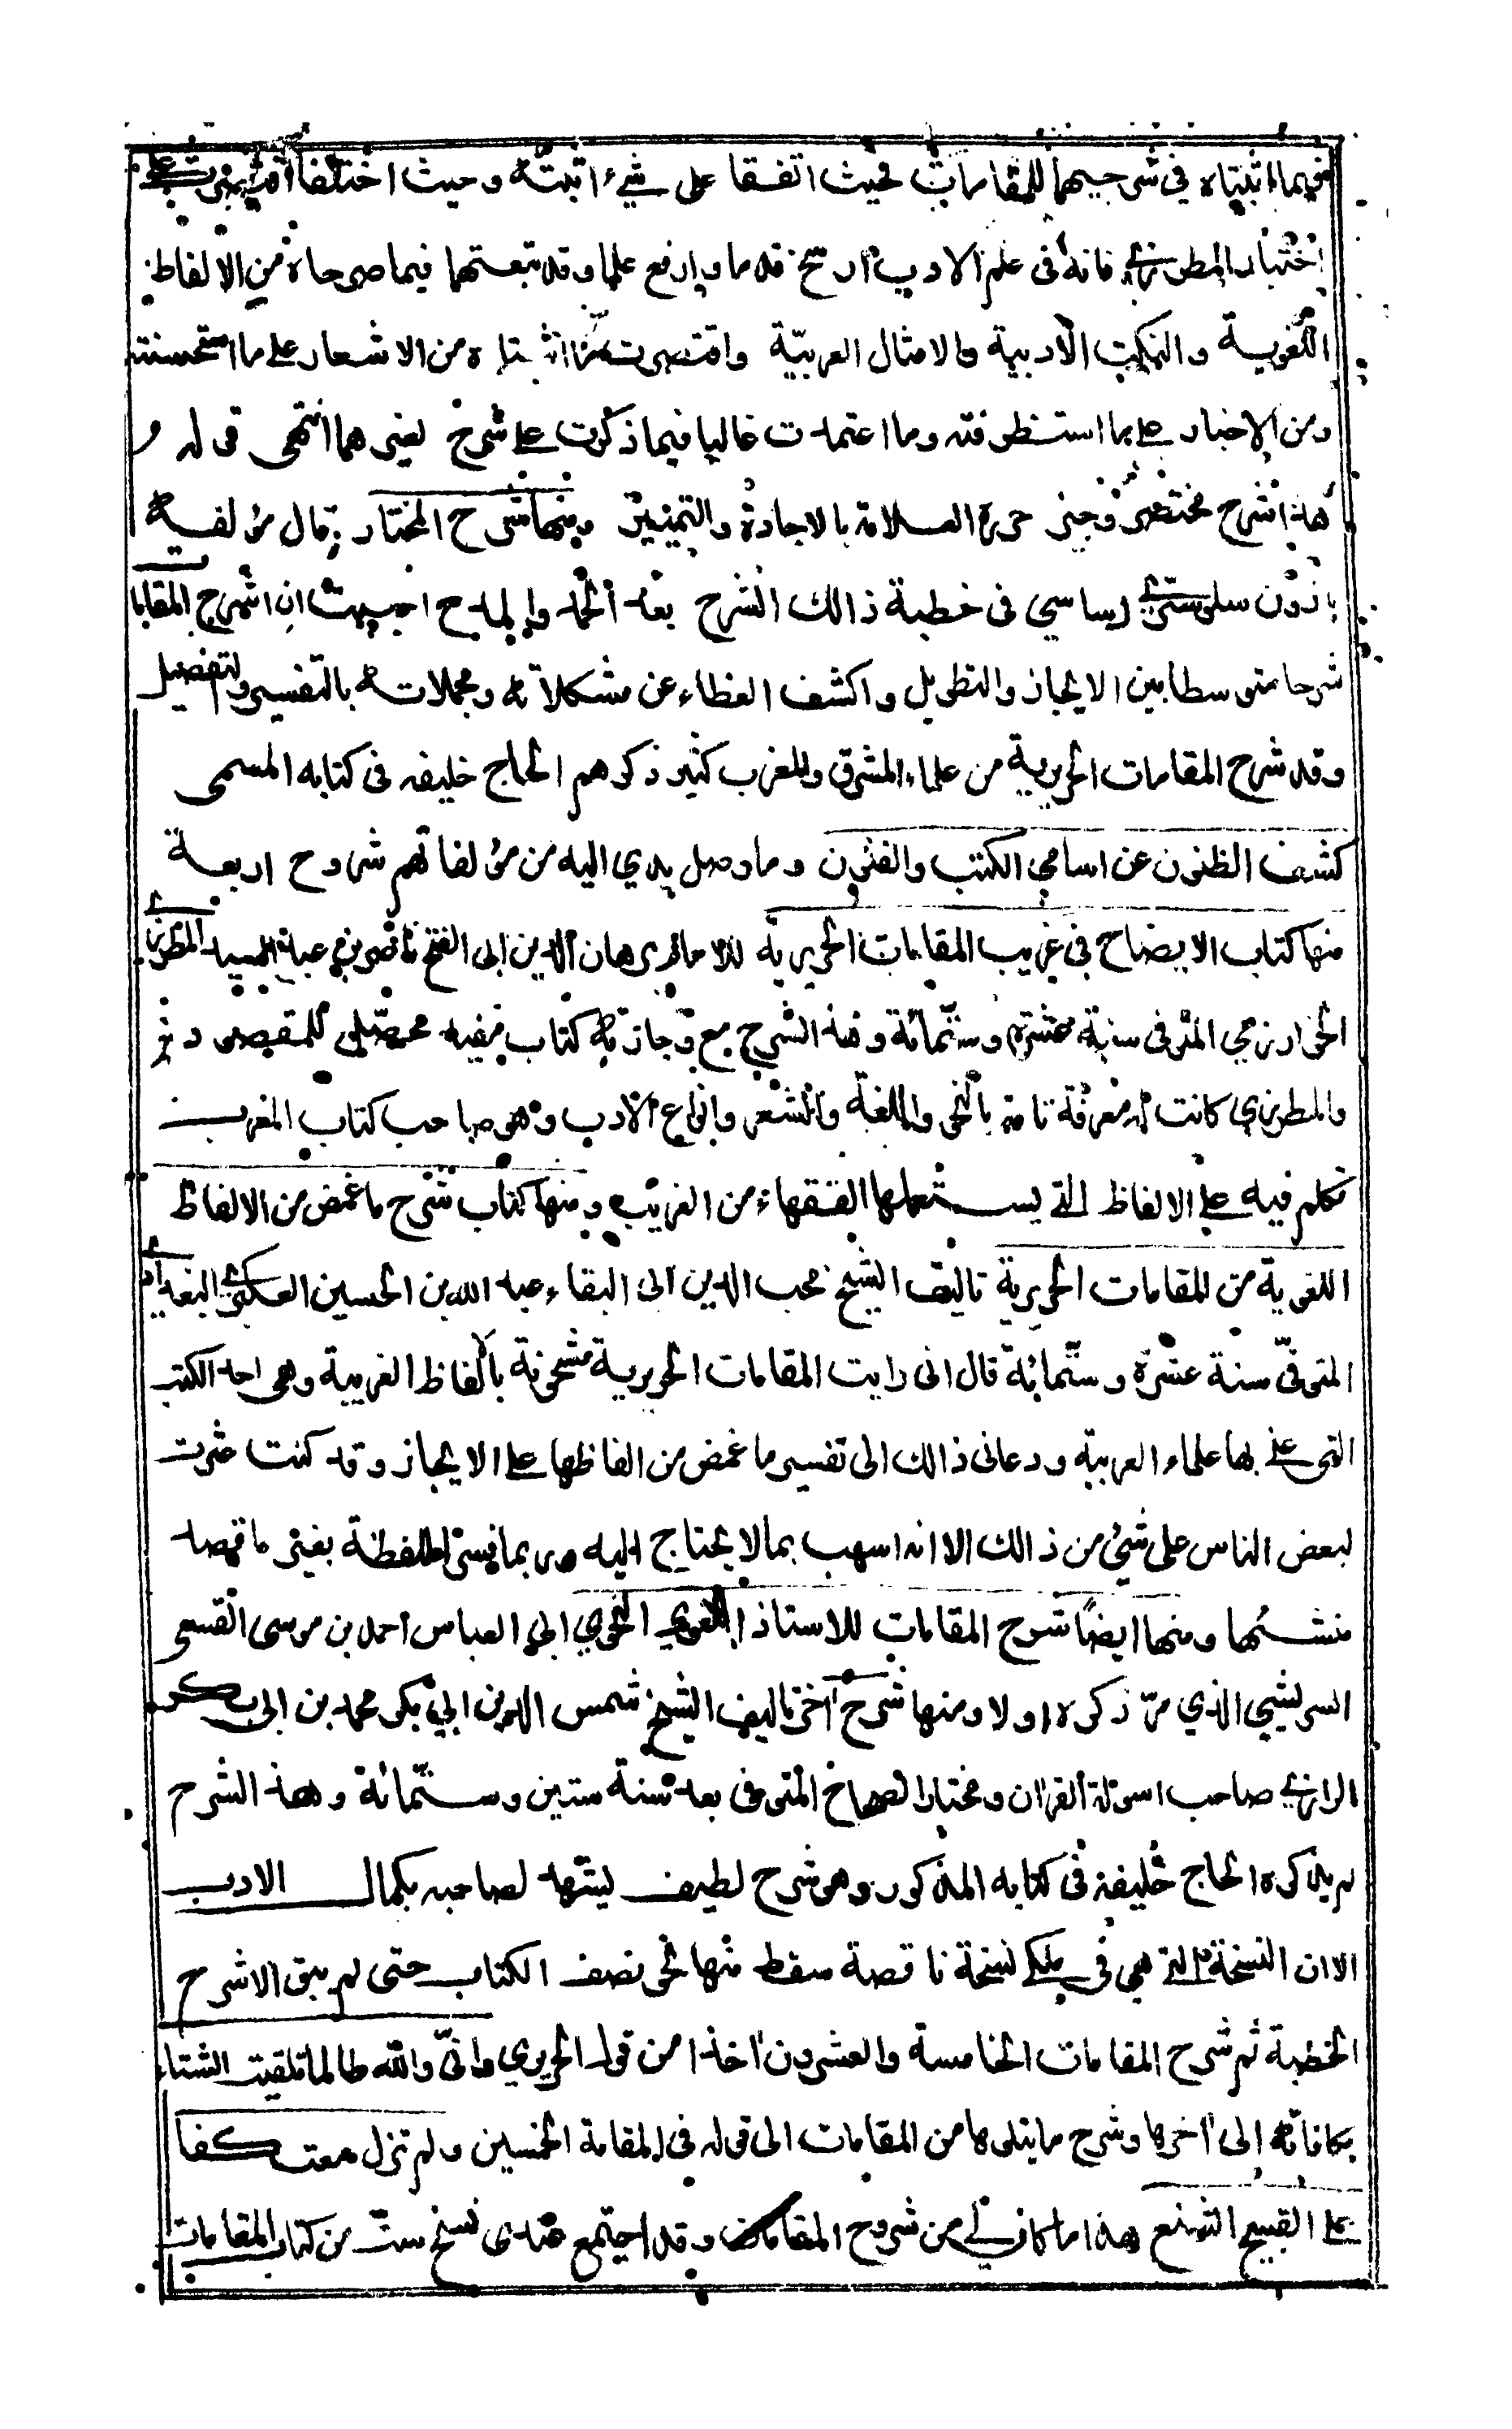 فيما اثبتاه في شرحيهما للمقامات فحيث اتفقا على شيء اثبته وحيث اختلفا
اختيار المطرزي فانه في علم الادب ارسخ قدما وارفع علما وقد تبعتهما فيما صرحاه من الالفاظ
اللغوية والنكت الادبية والامثال العربيّة واقتصرت ممّا اثبتاه من الاشعار على ما استحسنته
ومن الاخبار على ما استظرفته وما اعتمدت غالبا فيما ذكرت على شرح لغيرهما انتهى قوله و
هذا شرح مختصر وجيز حرره العلامة بالاجادة والتمييز ومنها شرح المختار قال مؤلفه
بارون سلوستري دساسي في خطبة ذالك الشرح بعد الحمد والمدح احببت ان اشرح المقاما
شرحا متوسطا بين الايجاز والتطويل واكشف الغطاء عن مشكلاته ومجملاته بالتفسير والتفصيل
وقد شرح المقامات الحريرية من علماء المشرق والمغرب كثير ذكرهم الحاج خليفه في كتابه المسمى
كشف الظنون عن اسامي الكتب والفنون وما وصل يدي اليه من مؤلفاتهم شروح اربعة
منها كتاب الايضاح في غريب المقامات الحريرية للامام برهان الدين ابى الفتح ناصر بن عبد السيد المطرزي
الخوارزمي المتوفى سنة عشرة وستمائة وهذا الشرح مع وجازته كتاب مفيد محصّل للمقصود
والمطرزي كانت له معرفة تامة بالنحو واللغة والشعر وانواع الادب وهو صاحب كتاب المغرب
تكلم فيه على الالفاظ التي يستعملها الفقهاء من الغريب ومنها كتاب شرح ما غمض من الالفاظ
اللغوية من المقامات الحريرية تاليف الشيخ محب الدين ابى البقاء عبد الله بن الحسين العكبري البغدادي
المتوفّى سنة عشرة وستّمائة قال انى رايت المقامات الحريرية مشحونة بالالفاظ الغريبة وهى احد الكتب
التى عني بها علماء العربية ودعانى ذالك الى تفسير ما غمض من الفاظها على الايجاز وقد كنت عثرت
لبعض الناس على شئ من ذالك الا انه اسهب بما لا يحتاج اليه وربما فسر اللفظة بغير ما قصد
منشئها ومنها ايضًا شرح المقامات للاستاذ اللغوي النحوي ابي العباس احمد بن موسى القسعى
السريشيي الذي مرّ ذكره اولا ومنها شرح آخر تاليف الشيخ شمس الدين ابي بكر محمد بن ابى بكر
الرازي صاحب اسولة القرآن ومختار الصحاح المتوفى بعد سنة ستين وستمائة وهذا الشرح
لم يذكره الحاج خليفة في كتابه المذكور وهو شرح لطيف ليشهد لصاحبه بكمال الادب
الا ان النسخة التي هي في ملكي نسخة ناقصة سقط منها نحو نصف الكتاب حتى لم يبق الا شرح
الخطبة ثم شرح المقامات الخامسة والعشرون اخذا من قول الحريري وانّي والله طالما تلقيت الشتاء
بكافاته الى آخرها وشرح ما يتلوها من المقامات الى قوله في المقامة الخمسين ولم تزل معتكفا
على القبيح الشنع هذا ما كان لي من شروح المقامات وقد اجتمع عندى نسخ ست من كتاب المقامات